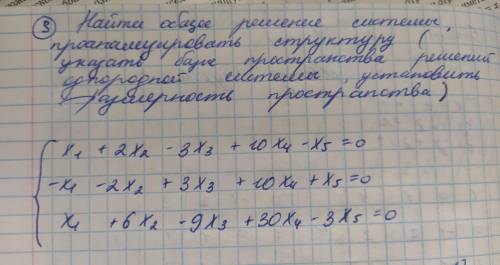 ③ Найти общее решение системы,
проанализировать структуру (
указать базис пространства решений
однородной системы, установить
размерность пространства)
x₁ + 2x₂ - 3x₃ + 10x₄ - x₅ = 0
-x₁ - 2x₂ + 3x₃ + 10x₄ + x₅ = 0
x₁ + 6x₂ - 9x₃ + 30x₄ - 3x₅ = 0